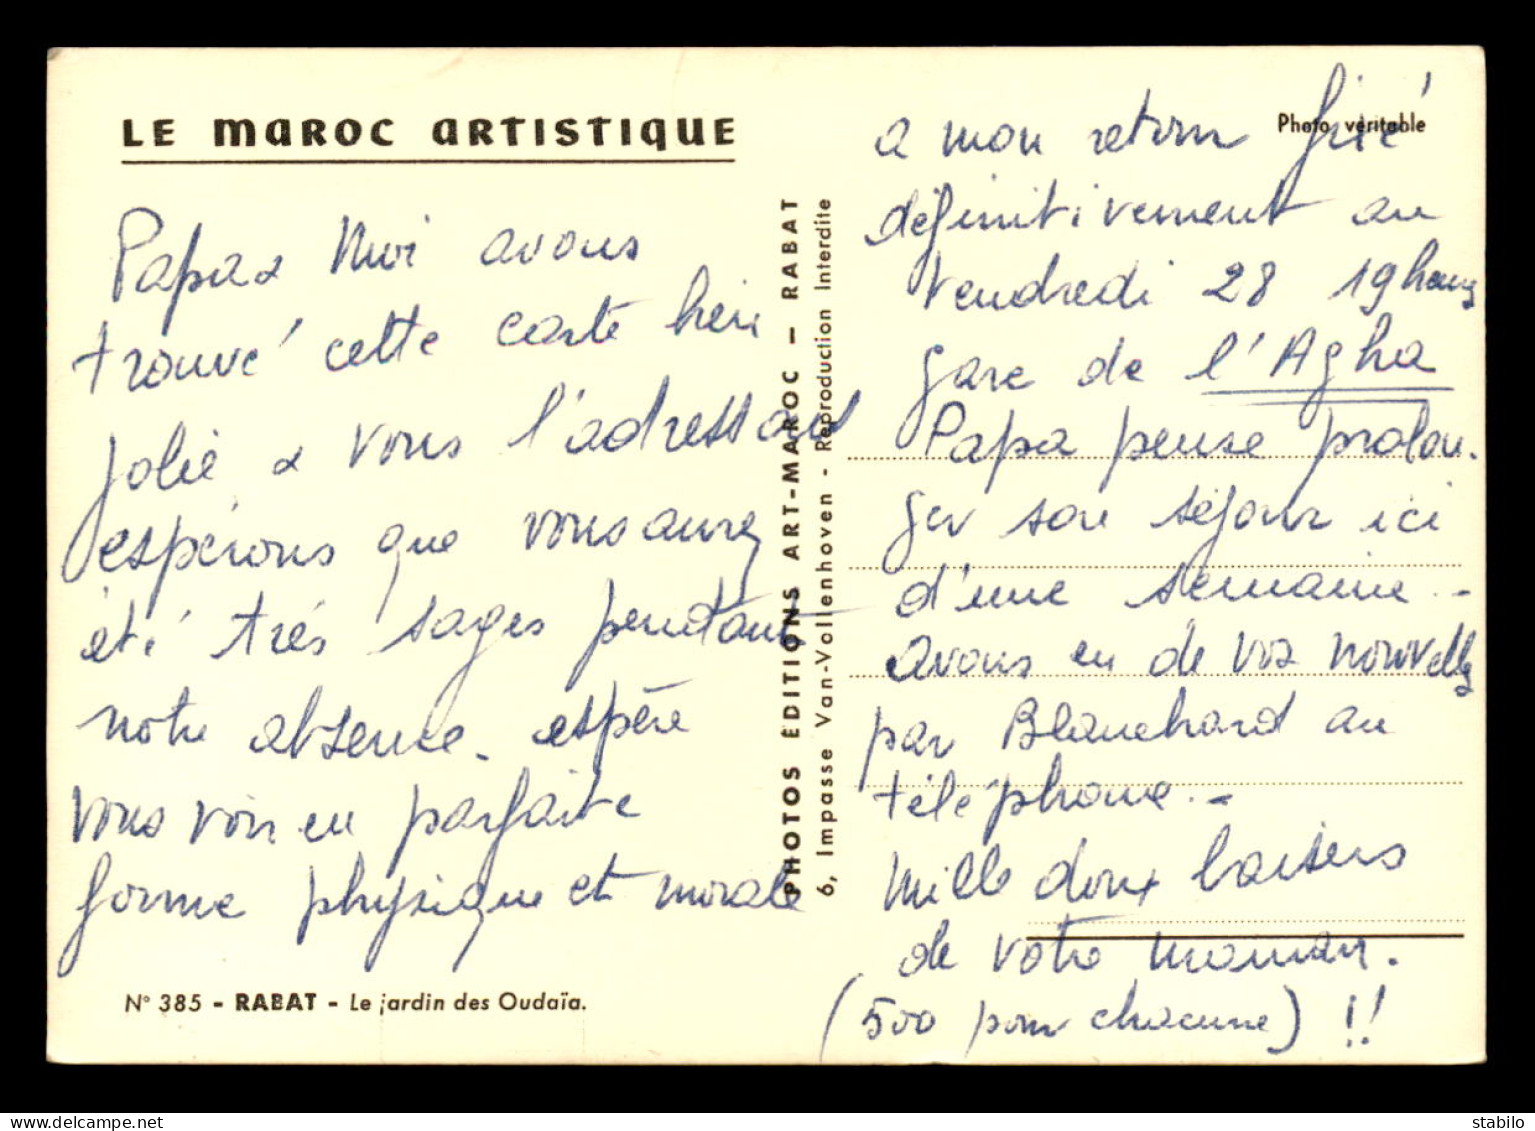 LE MAROC ARTISTIQUE
Papa & Moi avons
trouvé cette carte hier
jolie & vous l'adressons
espérons que vous aurez
été très sages pendant
notre absence. espère
vous voir en parfaite
forme physique et morale
N° 385 - RABAT - Le jardin des Oudaïa.
PHOTOS EDITIONS ART-MAROC - RABAT
6, Impasse Van-Vollenhoven - Reproduction Interdite
Photo véritable
a mon retour fixé
définitivement au
Vendredi 28 19 heures
gare de l'Agha
Papa pense prolon-
ger son séjour ici
d'une semaine.-
avons eu de vos nouvelles
par Blanchard au
téléphone.-
Mille doux baisers
de votre maman.
(500 pour chacune) !!
delcampe.net
stabilo